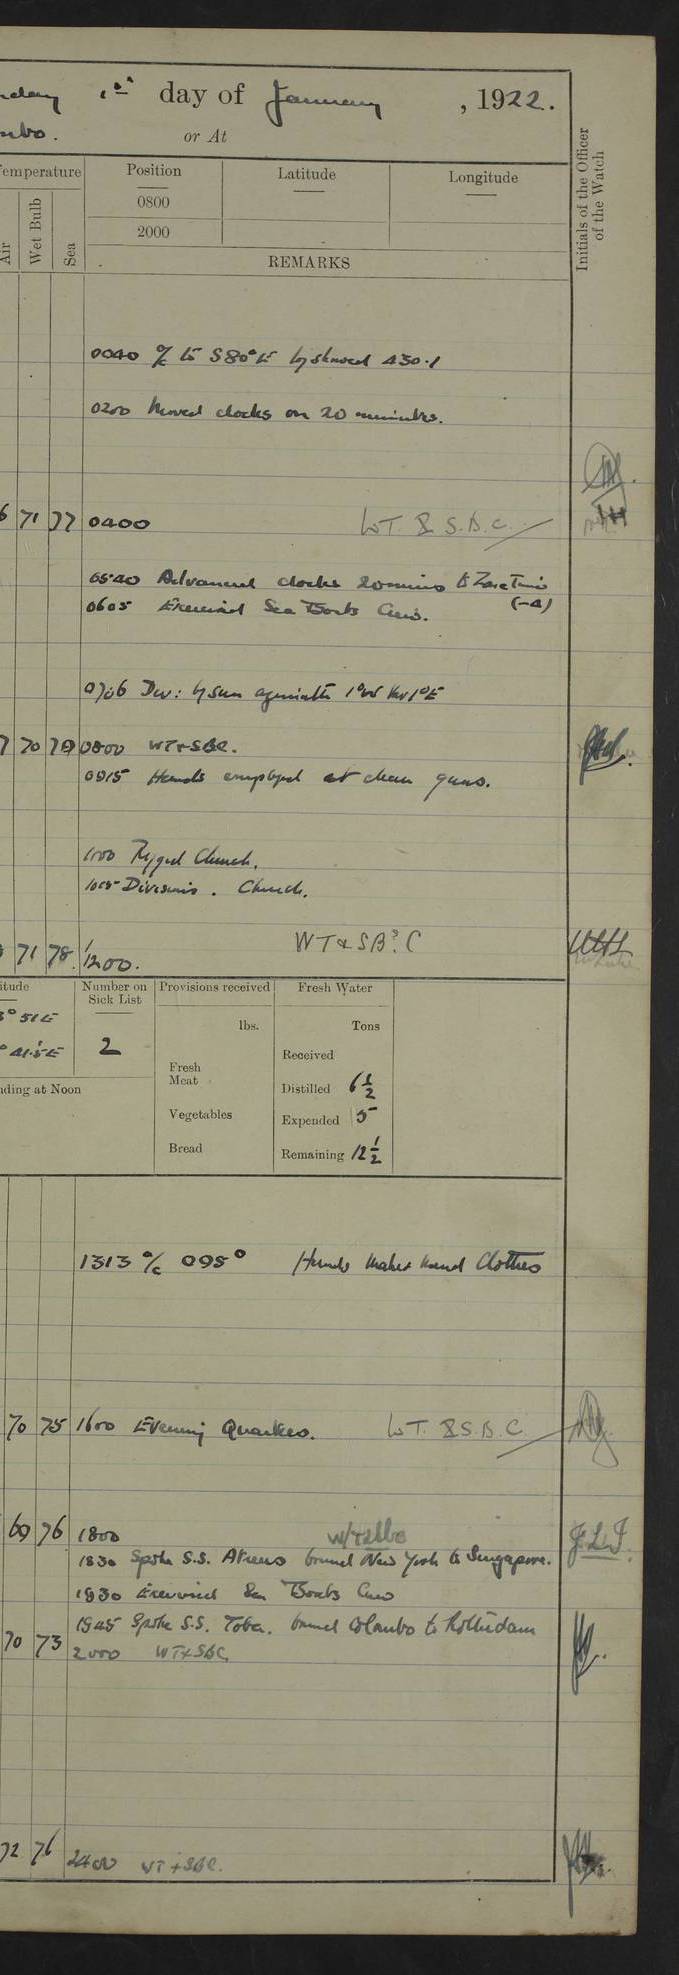 day 1st day of January, 1922.
mbo. or At
Temperature Position Latitude Longitude
Air Wet Bulb Sea
0800
2000
REMARKS
Initials of the Officer of the Watch
0040 a/c to S80°E log showed 430.1
0200 Moved clocks on 20 minutes.
6 71 77 0400 WT & S.B.C.
0540 Advanced clocks 20 mins to Zone Time
(-4)
0605 Exercised Sea Boats Crews.
0706 Dev: by sun 1°E
7 70 79 0800 WT & SBC.
0915 Hands employed at clean guns.
1000 Rigged Church.
Divisions. Church.
71 78. 1200. WT & SB? C
itude Number on Sick List Provisions received Fresh Water
° 51 E
° 41.5 E 2
lbs. Tons
Received
Fresh Meat
nding at Noon Distilled 6 1/2
Vegetables Expended 5
Bread Remaining 12 1/2
1313 a/c 095° Hands make & mend Clothes
70 75 1600 Evening Quarters. WT. & S.B.C.
69 76 1800 WT&SBC J.L.F.
1830 Spoke S.S. bound New York to Singapore.
1830 Exercised Sea Boats Crew
1945 Spoke S.S. Toba. bound Colombo to Rotterdam
70 73 2000 WT & SBC.
72 76 2400 WT & SBC.